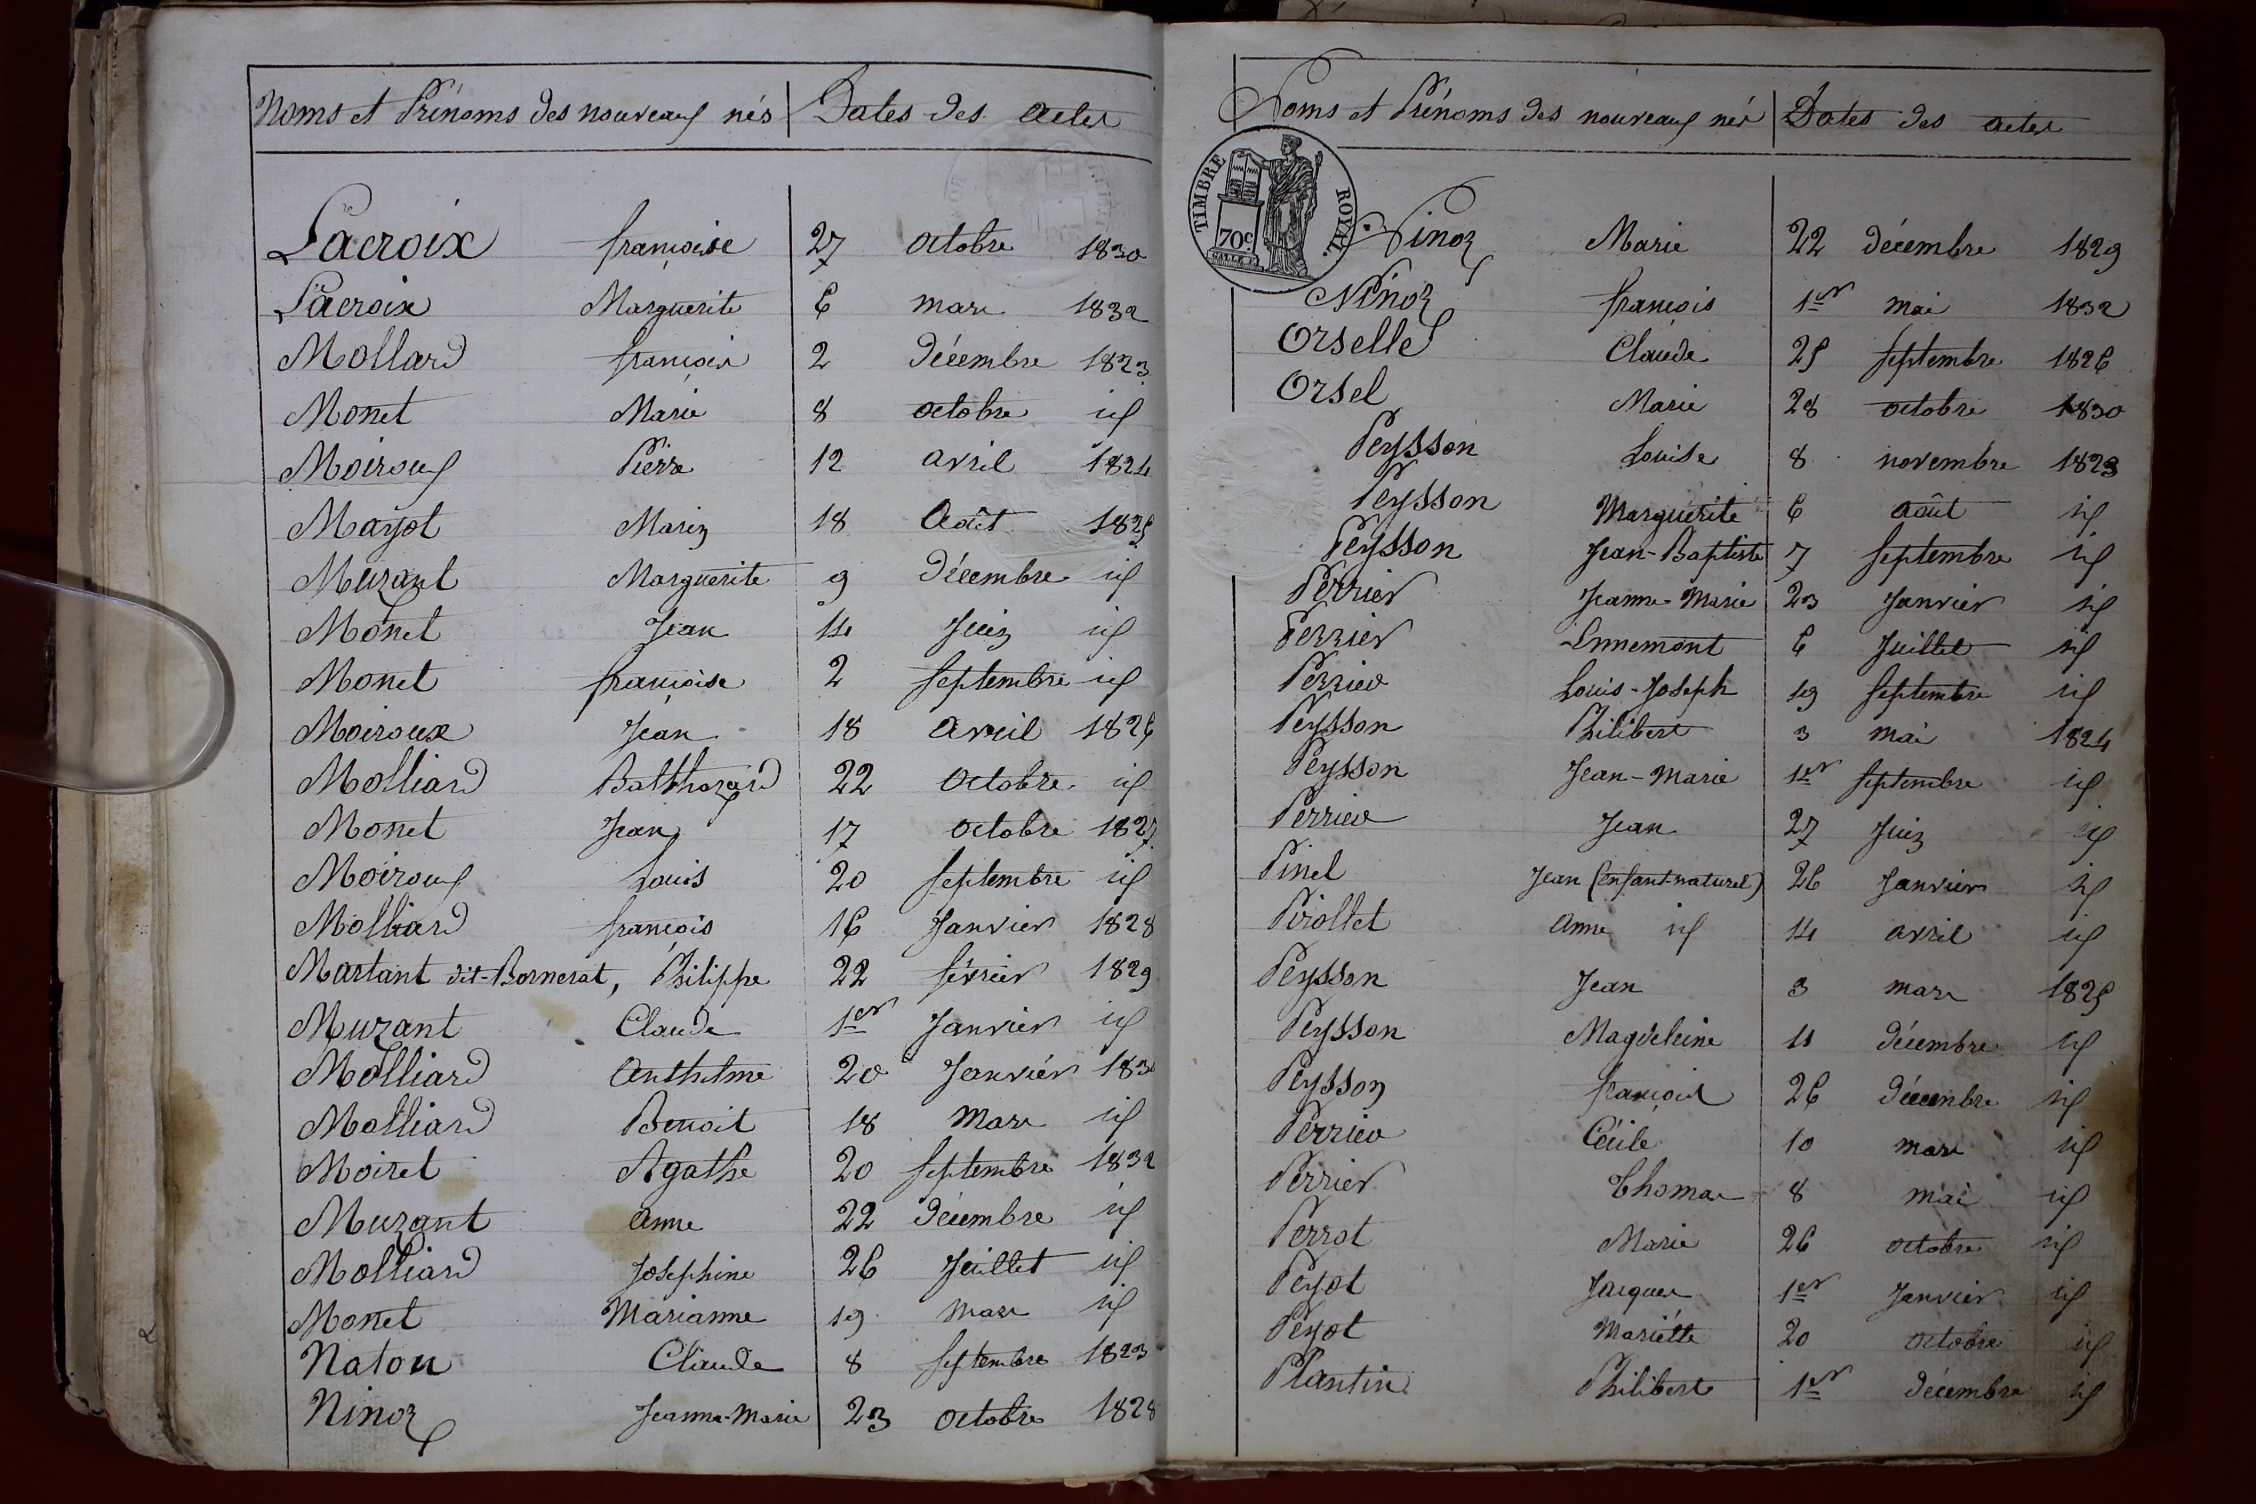 Noms et Prénoms des nouveaux nés Dates des actes
Lacroix françoise 27 octobre 1830
Lacroix Marguerite 6 mars 1832
Mollard françois 2 décembre 1823
Monet Marie 8 octobre id
Moiroux Pierre 12 avril 1824
Mayot Marie 18 Août 1825
Muzant Marguerite 9 décembre id
Monet Jean 14 Juin id
Monet françoise 2 septembre id
Moiroux Jean 18 avril 1826
Molliard Balthazard 22 octobre id
Monet Jean 17 octobre 1827
Moiroux Louis 20 septembre id
Molliard françois 16 Janvier 1828
Martant dit-Bornerat, Philippe 22 février 1829
Muzant Claude 1er Janvier id
Molliard Anthelme 20 Janvier 1830
Molliard Benoit 18 Mars id
Moiret Agathe 20 septembre 1832
Muzant Anne 22 décembre id
Molliard Josephine 26 Juillet id
Monet Marianne 19 Mars id
Natou Claude 8 septembre 1823
Ninoz Jeanne-Marie 23 octobre 1828
Noms et Prénoms des nouveaux nés Dates des actes
TIMBRE ROYAL
70c
Ninoz Marie 22 décembre 1829
Ninoz françois 1er mai 1832
Orselle Claude 25 septembre 1826
Orsel Marie 28 octobre 1830
Peysson Louise 8 novembre 1823
Peysson Marguerite 6 août id
Peysson Jean-Baptiste 7 septembre id
Perrier Jeanne-Marie 23 Janvier id
Perrier Ennemont 6 Juillet id
Perrier Louis-Joseph 19 septembre id
Peysson Philibert 3 mai 1824
Peysson Jean-Marie 1er septembre id
Perrier Jean 27 Juin id
Pinel Jean (enfant-naturel) 26 Janvier id
Pirollet Anne id 14 avril id
Peysson Jean 3 mars 1825
Peysson Magdeleine 11 décembre id
Peysson françois 26 décembre id
Perrier Cécile 10 mars id
Perrier Thomas 8 mai id
Perrot Marie 26 octobre id
Peyot Jacques 1er Janvier id
Peyot Mariette 20 octobre id
Plantin Philibert 1er décembre id